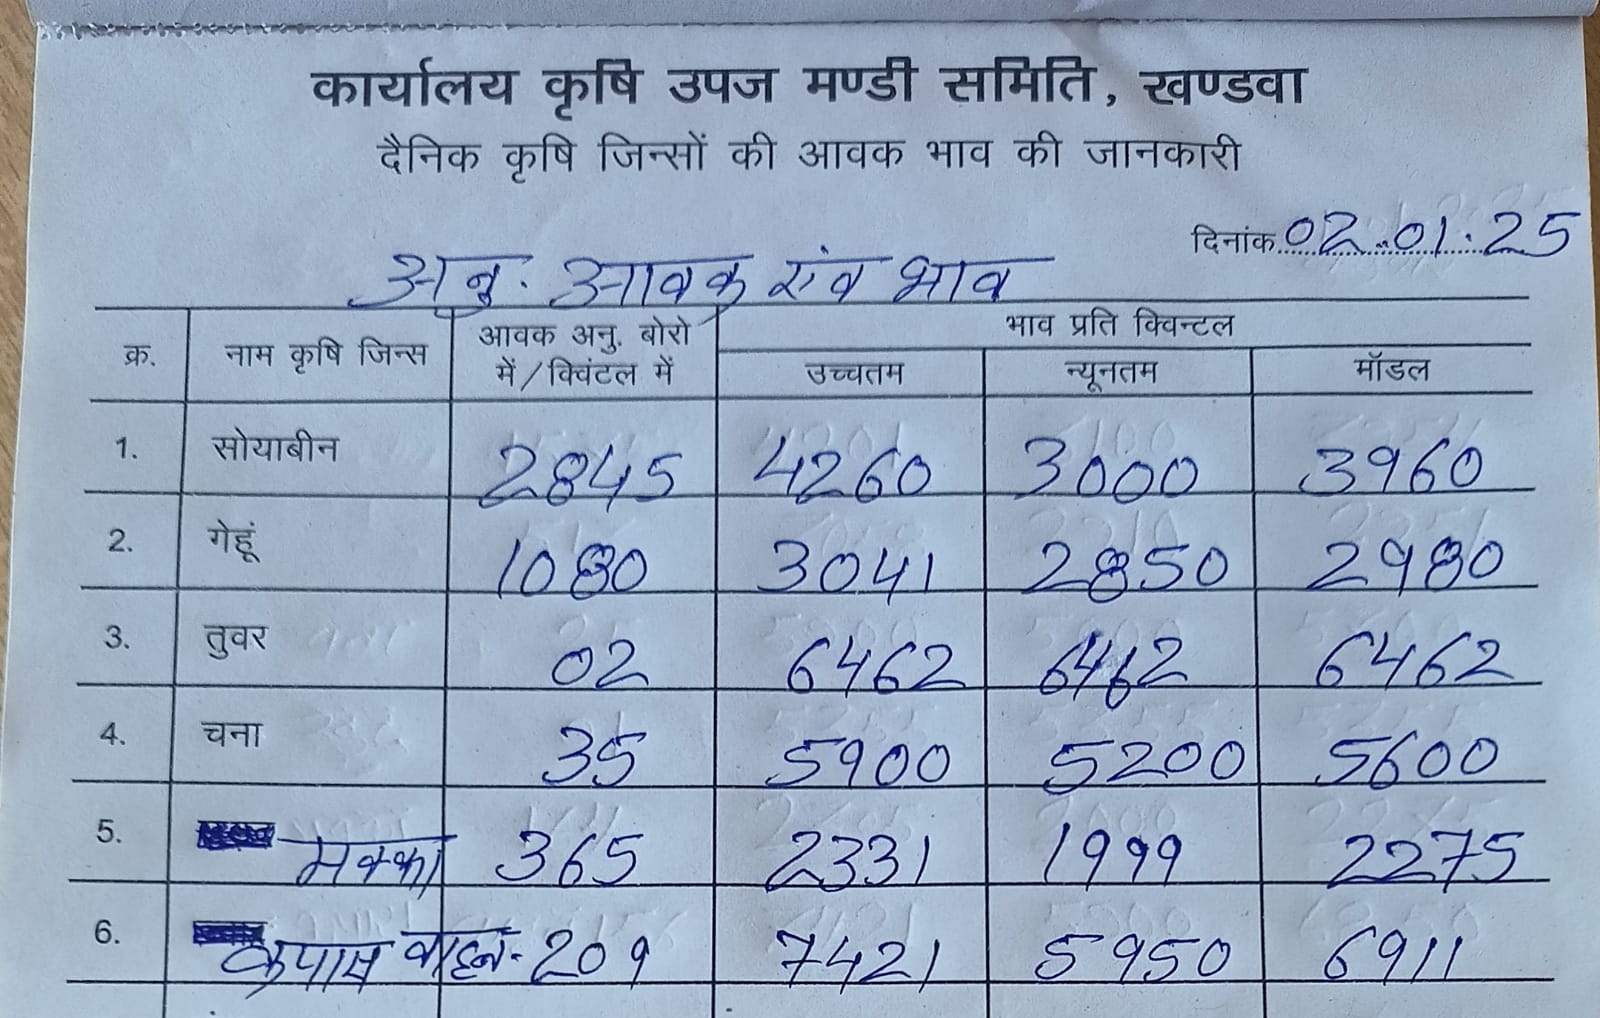 कार्यालय कृषि उपज मण्डी समिति, खण्डवा
दैनिक कृषि जिन्सों की आवक भाव की जानकारी
दिनांक 02.01.25
अनु. आवक एंव भाव
क्र. नाम कृषि जिन्स आवक अनु. बोरो में/क्विंटल में भाव प्रति क्विन्टल
उच्चतम न्यूनतम मॉडल
1. सोयाबीन 2845 4260 3000 3960
2. गेहूं 1080 3041 2850 2980
3. तुवर 02 6462 6462 6462
4. चना 35 5900 5200 5600
5. मक्का 365 2331 1999 2275
6. कपास वाहन-209 7421 5950 6911